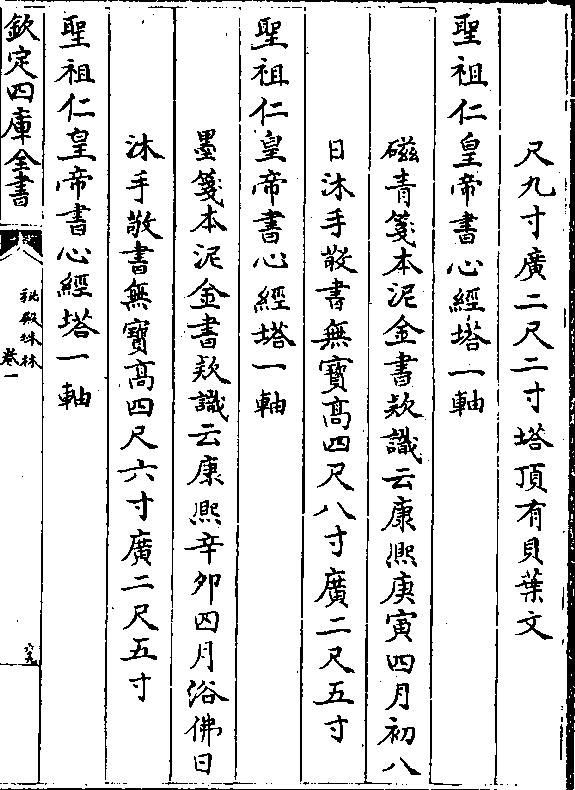 尺九寸廣二尺二寸塔頂有貝葉文
聖祖仁皇帝書心經塔一軸
磁青箋本泥金書欵識云康熙庚寅四月初八
日沐手敬書無寶髙四尺八寸廣二尺五寸
聖祖仁皇帝書心經塔一軸
墨箋本泥金書欵識云康熙辛夘四月浴佛日
沐手敬書無寶髙四尺六寸廣二尺五寸
聖祖仁皇帝書心經塔一軸
欽定四庫全書
秘殿珠林
卷一
六